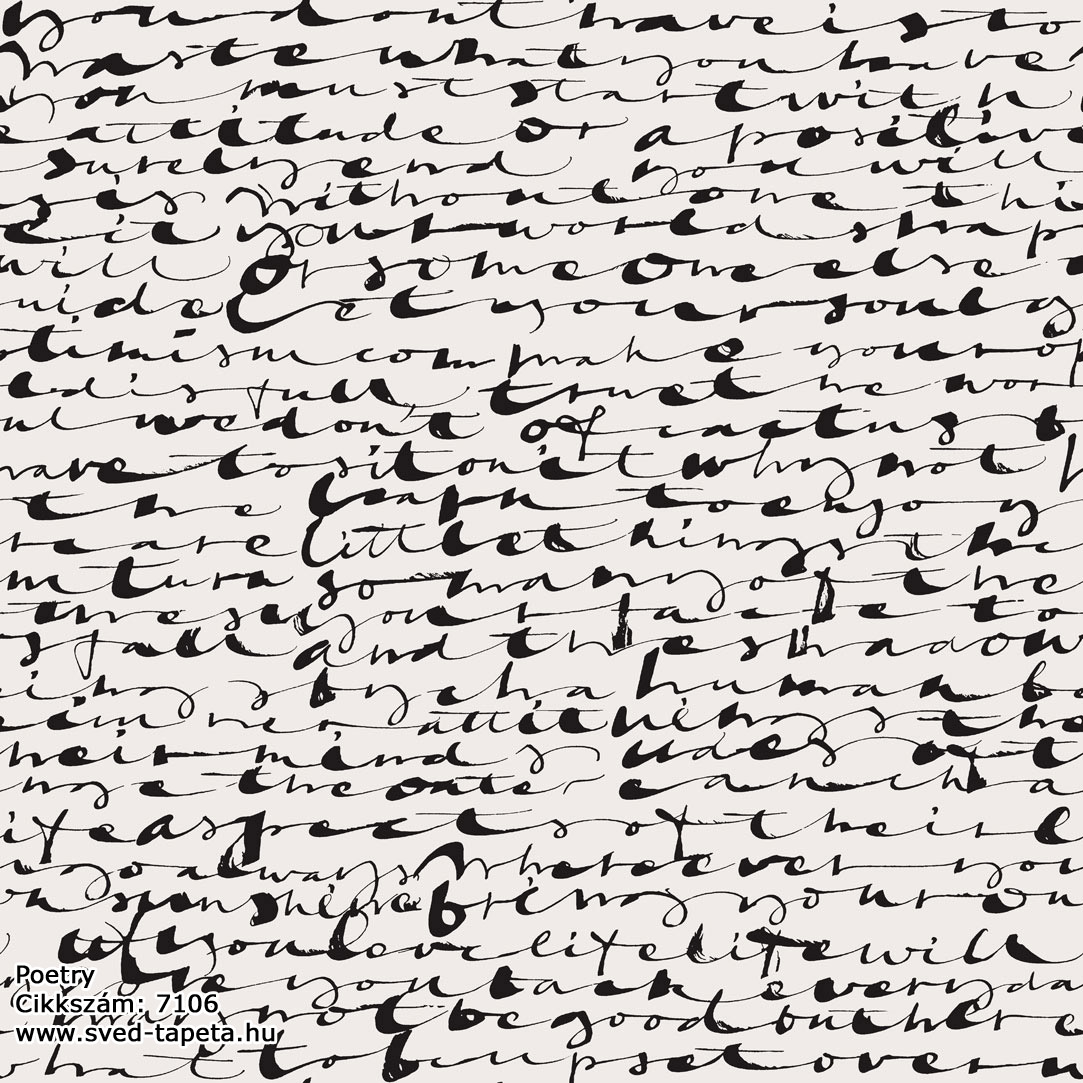 you dont have is to
waste what you have
you must start with
attitude or a positive
surely end you will
is without one thi
e it your world shap
will Or someone else
uide Let your soul g
timism com make your op
ld is full trust he wor
ul we dont of cactus b
have to sit on it why not
t he learn to enjoy
re are little things the
n turn so many of the
the su your face to
s fall and the shadow
ing s by cha human be
attit hings the
heir minds udes of t
nge the oute can cha
ife aspects of their l
go always Where ever you
n sunshine bring your ow
If you love life life will
love you back everyda
not be good but there
what to be upset over
Poetry
Cikkszám: 7106
www.sved-tapeta.hu